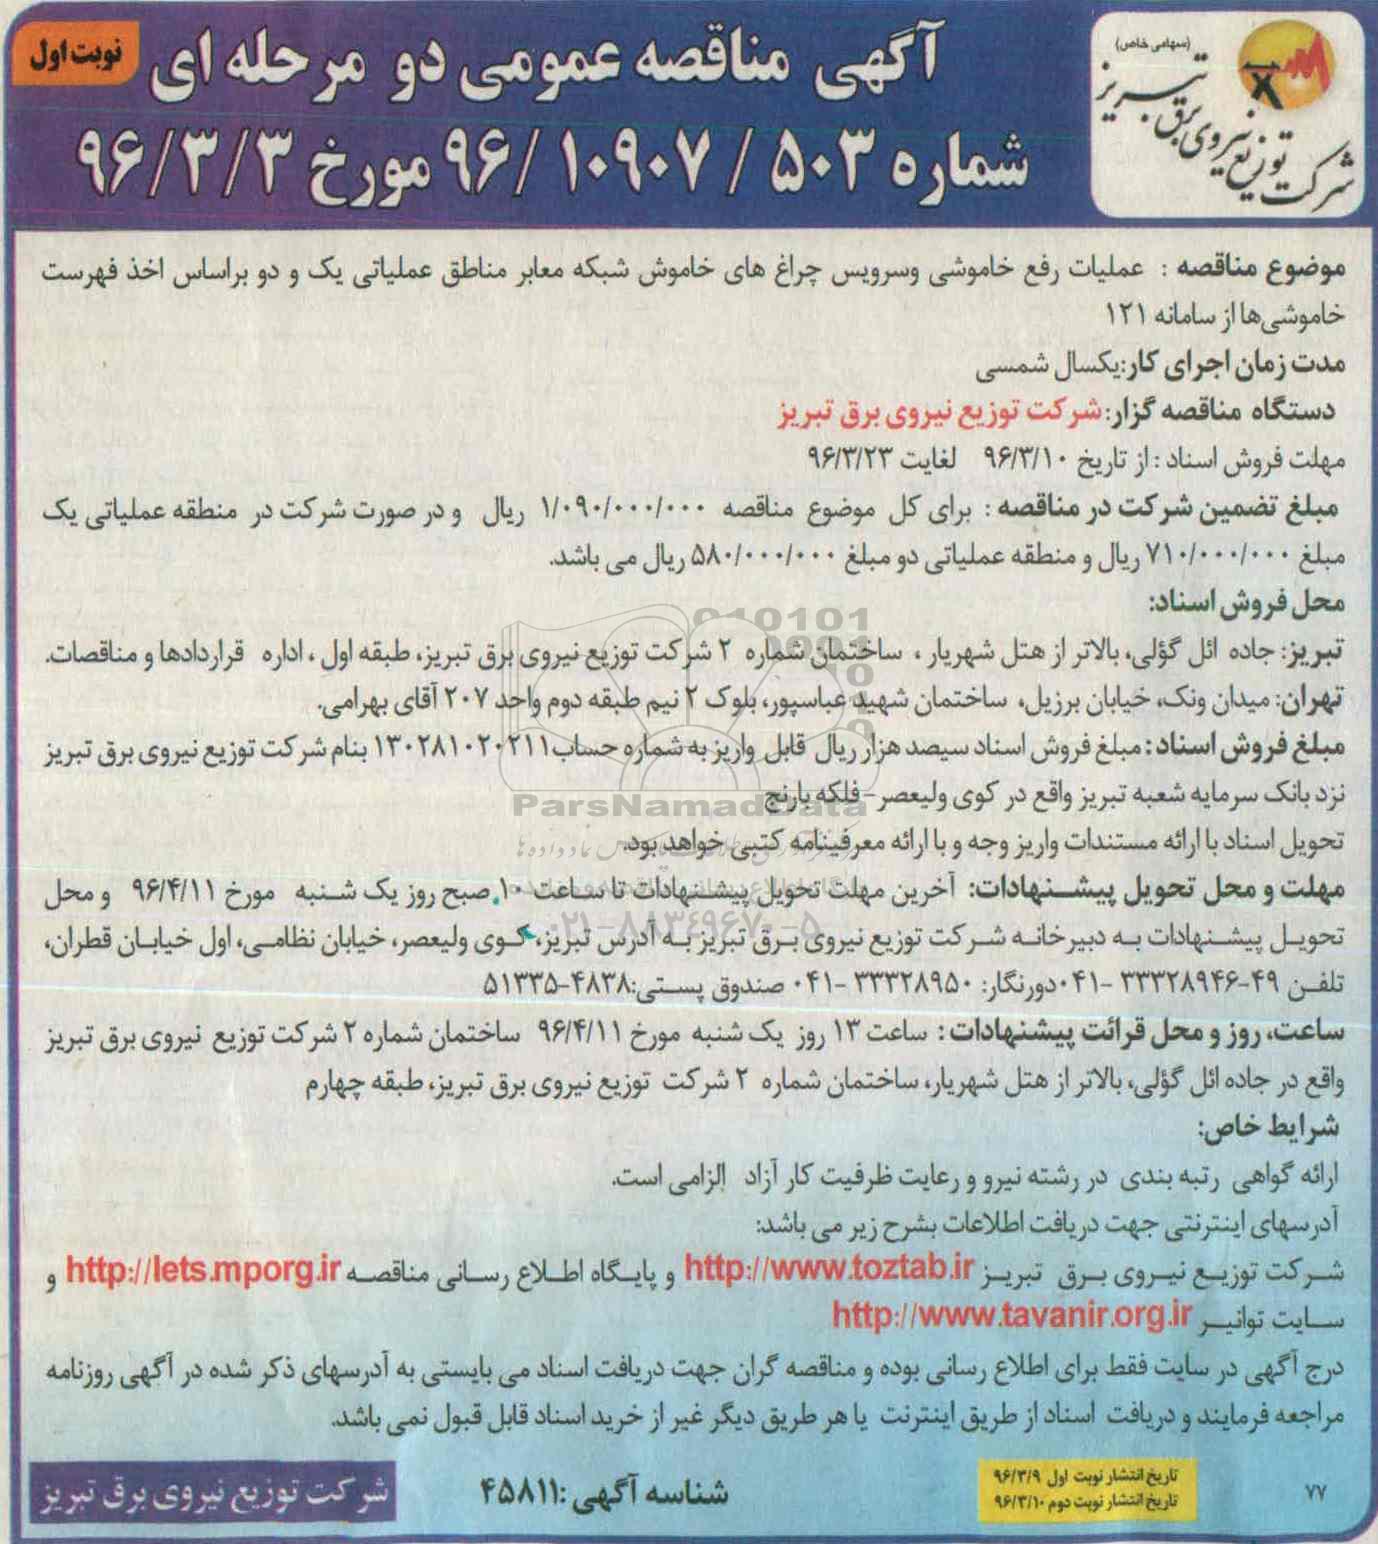 (سهامی خاص)
شرکت توزیع نیروی برق تبریز
نوبت اول
آگهی مناقصه عمومی دو مرحله ای
شماره ۵۰۳ / ۱۰۹۰۷ /۹۶ مورخ ۹۶/۳/۳
موضوع مناقصه : عملیات رفع خاموشی وسرویس چراغ های خاموش شبکه معابر مناطق عملیاتی یک و دو براساس اخذ فهرست
خاموشی‌ها از سامانه ۱۲۱
مدت زمان اجرای کار:یکسال شمسی
دستگاه مناقصه گزار: شرکت توزیع نیروی برق تبریز
مهلت فروش اسناد : از تاریخ ۹۶/۳/۱۰ لغایت ۹۶/۳/۲۳
مبلغ تضمین شرکت در مناقصه : برای کل موضوع مناقصه ۱/۰۹۰/۰۰۰/۰۰۰ ریال و در صورت شرکت در منطقه عملیاتی یک
مبلغ ۷۱۰/۰۰۰/۰۰۰ ریال و منطقه عملیاتی دو مبلغ ۵۸۰/۰۰۰/۰۰۰ ریال می باشد.
محل فروش اسناد:
تبریز: جاده ائل گؤلی، بالاتر از هتل شهریار ، ساختمان شماره ۲ شرکت توزیع نیروی برق تبریز، طبقه اول ، اداره قراردادها و مناقصات.
تهران: میدان ونک، خیابان برزیل، ساختمان شهید عباسپور، بلوک ۲ نیم طبقه دوم واحد ۲۰۷ آقای بهرامی.
مبلغ فروش اسناد : مبلغ فروش اسناد سیصد هزار ریال قابل واریز به شماره حساب ۱۳۰۲۸۱۰۲۰۲۱۱ بنام شرکت توزیع نیروی برق تبریز
نزد بانک سرمایه شعبه تبریز واقع در کوی ولیعصر- فلکه بارنج
ParsNamadData
تحویل اسناد با ارائه مستندات واریز وجه و با ارائه معرفینامه کتبی خواهد بود.
مهلت و محل تحویل پیشنهادات: آخرین مهلت تحویل پیشنهادات تا ساعت ۱۰ صبح روز یک شنبه مورخ ۹۶/۴/۱۱ و محل
۰۲۱-۸۸۳۴۹۶۷۰-۵
تحویل پیشنهادات به دبیرخانه شرکت توزیع نیروی برق تبریز به آدرس تبریز، کوی ولیعصر، خیابان نظامی، اول خیابان قطران،
تلفن ۴۹-۳۳۳۲۸۹۴۶ -۰۴۱ دورنگار: ۳۳۳۲۸۹۵۰ -۰۴۱ صندوق پستی:۴۸۳۸-۵۱۳۳۵
ساعت، روز و محل قرائت پیشنهادات : ساعت ۱۳ روز یک شنبه مورخ ۹۶/۴/۱۱ ساختمان شماره ۲ شرکت توزیع نیروی برق تبریز
واقع در جاده ائل گؤلی، بالاتر از هتل شهریار، ساختمان شماره ۲ شرکت توزیع نیروی برق تبریز، طبقه چهارم
شرایط خاص:
ارائه گواهی رتبه بندی در رشته نیرو و رعایت ظرفیت کار آزاد الزامی است.
آدرسهای اینترنتی جهت دریافت اطلاعات بشرح زیر می باشد:
شرکت توزیع نیروی برق تبریز http://www.toztab.ir و پایگاه اطلاع رسانی مناقصه http://lets.mporg.ir و
سایت توانیر http://www.tavanir.org.ir
درج آگهی در سایت فقط برای اطلاع رسانی بوده و مناقصه گران جهت دریافت اسناد می بایستی به آدرسهای ذکر شده در آگهی روزنامه
مراجعه فرمایند و دریافت اسناد از طریق اینترنت یا هر طریق دیگر غیر از خرید اسناد قابل قبول نمی باشد.
۷۷
تاریخ انتشار نوبت اول ۹۶/۳/۹
تاریخ انتشار نوبت دوم ۹۶/۳/۱۰
شناسه آگهی :۴۵۸۱۱
شرکت توزیع نیروی برق تبریز